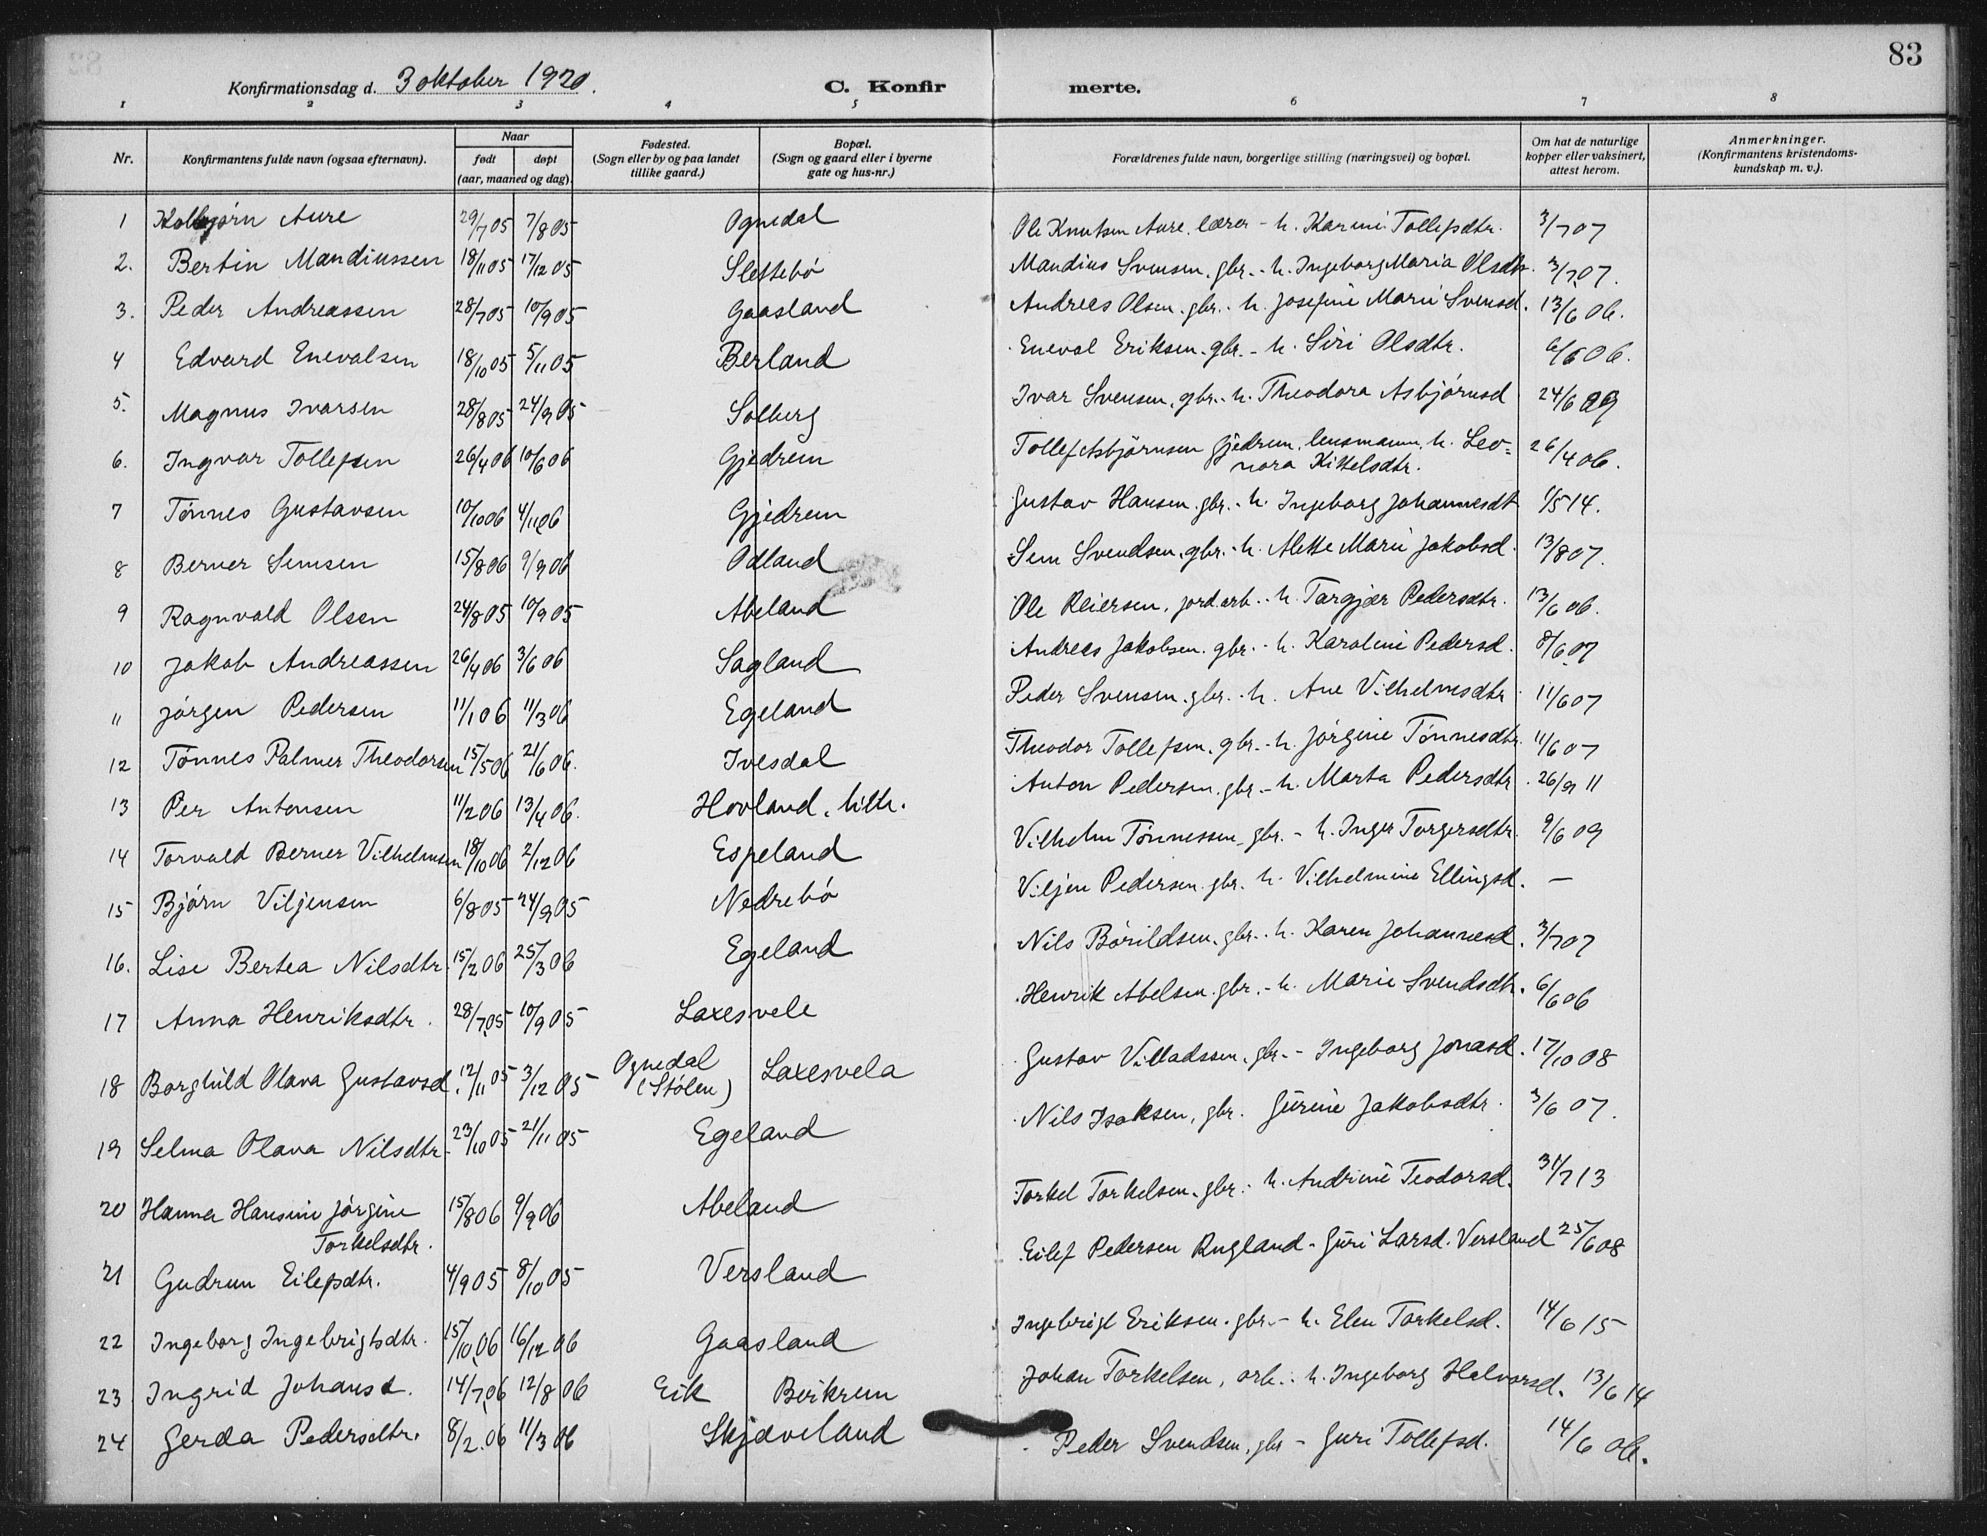 83
Konfirmationsdag d. 3 oktober 1920.
C. Konfir merte.
1 2 3 4 5 6 7 8
Nr.
Konfirmantens fulde navn (ogsaa efternavn).
Naar
født døpt
(aar, maaned og dag).
Fødested.
(Sogn eller by og paa landet
tillike gaard.)
Bopæl.
(Sogn og gaard eller i byerne
gate og hus-nr.)
Forældrenes fulde navn, borgerlige stilling (næringsvei) og bopæl.
Om hat de naturlige
kopper eller vaksinert,
attest herom.
Anmerkninger.
(Konfirmantens kristendoms-
kundskap m. v.).
1 Kolbjørn Aure 29/7 05 7/8 05 Ognedal Ole Knutsen Aure, lærer - h. Karine Tollefsdtr. 3/7 07
2. Bertin Mandiussen 18/11 05 17/12 05 Slettebø Mandius Svensen. gbr. - h. Ingeborg Maria Olsdtr. 3/7 07.
3. Peder Andreassen 28/7 05 10/9 05 Gaasland Andreas Olsen. gbr. - h. Josefine Marie Svensd. 13/6 06.
4 Edvard Enevalsen 18/10 05 5/11 05 Berland Eneval Eriksen. gbr. - h. Siri Olsdtr. 6/6 06.
5. Magnus Ivarsen 28/8 05 24/9 05 Solberg Ivar Svensen. gbr. - h. Theodora Asbjørnsd 24/6 09
6. Ingvar Tollefsen 26/4 06 10/6 06 Gjedrem Tollef Asbjørnsen Gjedrem, lensmann, h. Leo=
nora Kittelsdtr. 26/4 06.
7 Tønnes Gustavsen 10/10 06 4/11 06 Gjedrem Gustav Hansen. gbr. - h. Ingeborg Johannesdt 1/5 14.
8 Berner Semsen 15/8 06 9/9 06 Odland Sem Svendsen. gbr. - h. Alette Marie Jakobsd. 13/8 07.
9 Ragnvald Olsen 24/8 05 10/9 05 Abeland Ole Reiersen, jord.arb. - h. Targjær Pedersdtr. 13/6 06.
10 Jakob Andreassen 26/4 06 3/6 06 Sagland Andreas Jakobsen. gbr. - h. Karoline Pedersd. 8/6 07
11 Jørgen Pedersen 11/1 06 11/3 06 Egeland Peder Svensen. gbr. - h. Ane Vilhelmsdtr 11/6 07
12 Tønnes Palmer Theodorsen 15/5 06 21/6 06. Ivesdal Theodor Tollefsen. gbr. - h. Jørgine Tønnesdtr. 11/6 07
13 Per Antonsen 11/2 06 13/4 06. Hovland, hith. Anton Pedersen. gbr. - h. Marta Pedersdtr. 26/9 11
14 Torvald Berner Vilhelmsen 18/10 06 2/12 06 Espeland Vilhelm Tønnessen, gbr. - h. Inger Torgersdtr. 9/6 09
15 Bjørn Viljensen 6/8 05 24/9 05 Nedrebø Viljen Pedersen. gbr. h. Vilhelmine Ellingsd. —
16. Lise Bertea Nilsdtr. 15/2 06 25/3 06 Egeland Nils Bårildsen. gbr. - h. Karen Johannesd. 3/7 07
17 Anna Henriksdtr. 28/7 05 10/9 05 Laxesvele Henrik Abelsen. gbr. - h. Marie Svendsdtr. 6/6 06
18 Borghild Olava Gustavsd. 12/11 05 3/12 05 Ognedal
(Stølen) Laxesvela Gustav Villadssen. gbr. - Ingeborg Jonasd. 17/10 08
19 Selma Olava Nilsdtr. 23/10 05 21/11 05 Egeland Nils Isaksen, gbr. Gurine Jakobsdtr. 3/6 07.
20 Hanna Hansine Jørgine
Torkelsdtr. 15/8 06 9/9 06 Abeland Torkel Torkelsen. gbr. - h. Andrine Teodorsd. 31/7 13
21 Gudrun Eilefsdtr. 4/9 05 8/10 05 Versland Eilef Pedersen Rugland - Guri Larsd. Versland 25/6 08
22 Ingeborg Ingebrigtsdtr. 15/10 06 16/12 06 Gaasland Ingebrigt Eriksen. gbr. - h. Elen Torkelsd. 14/6 15
23 Ingrid Johansd. 14/7 06 12/8 06 Eik Bjerkrem Johan Torkelsen, arb. - h. Ingeborg Halvorsd. 13/6 14
24 Gerda Pedersdtr. 8/2 06 11/3 06 Skjæveland Peder Svendsen, gbr - Guri Tollefsd. 14/6 06.